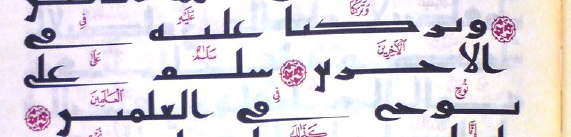 وتركنا عليه في
الاخرين سلم على
نوح في العلمين